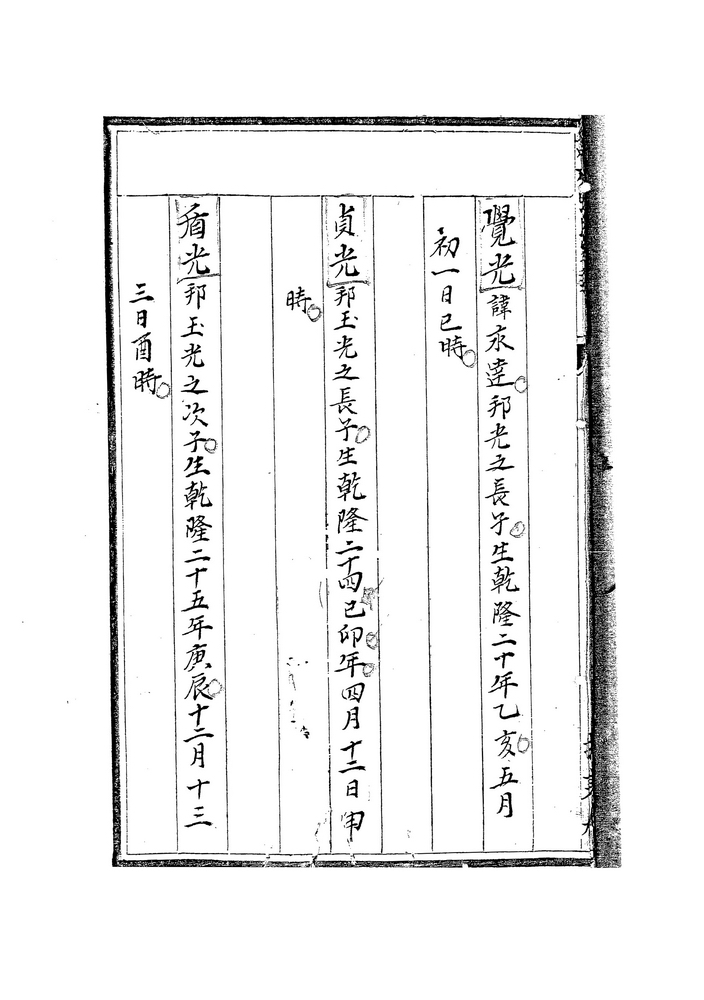 覺光諱永達邦光之長子生乾隆二十年乙亥五月
初一日巳時
貞光邦玉光之長子生乾隆二十四己卯年四月十二日申
時
邦玉光之次子生乾隆二十五年庚辰十二月十三
三日酉時